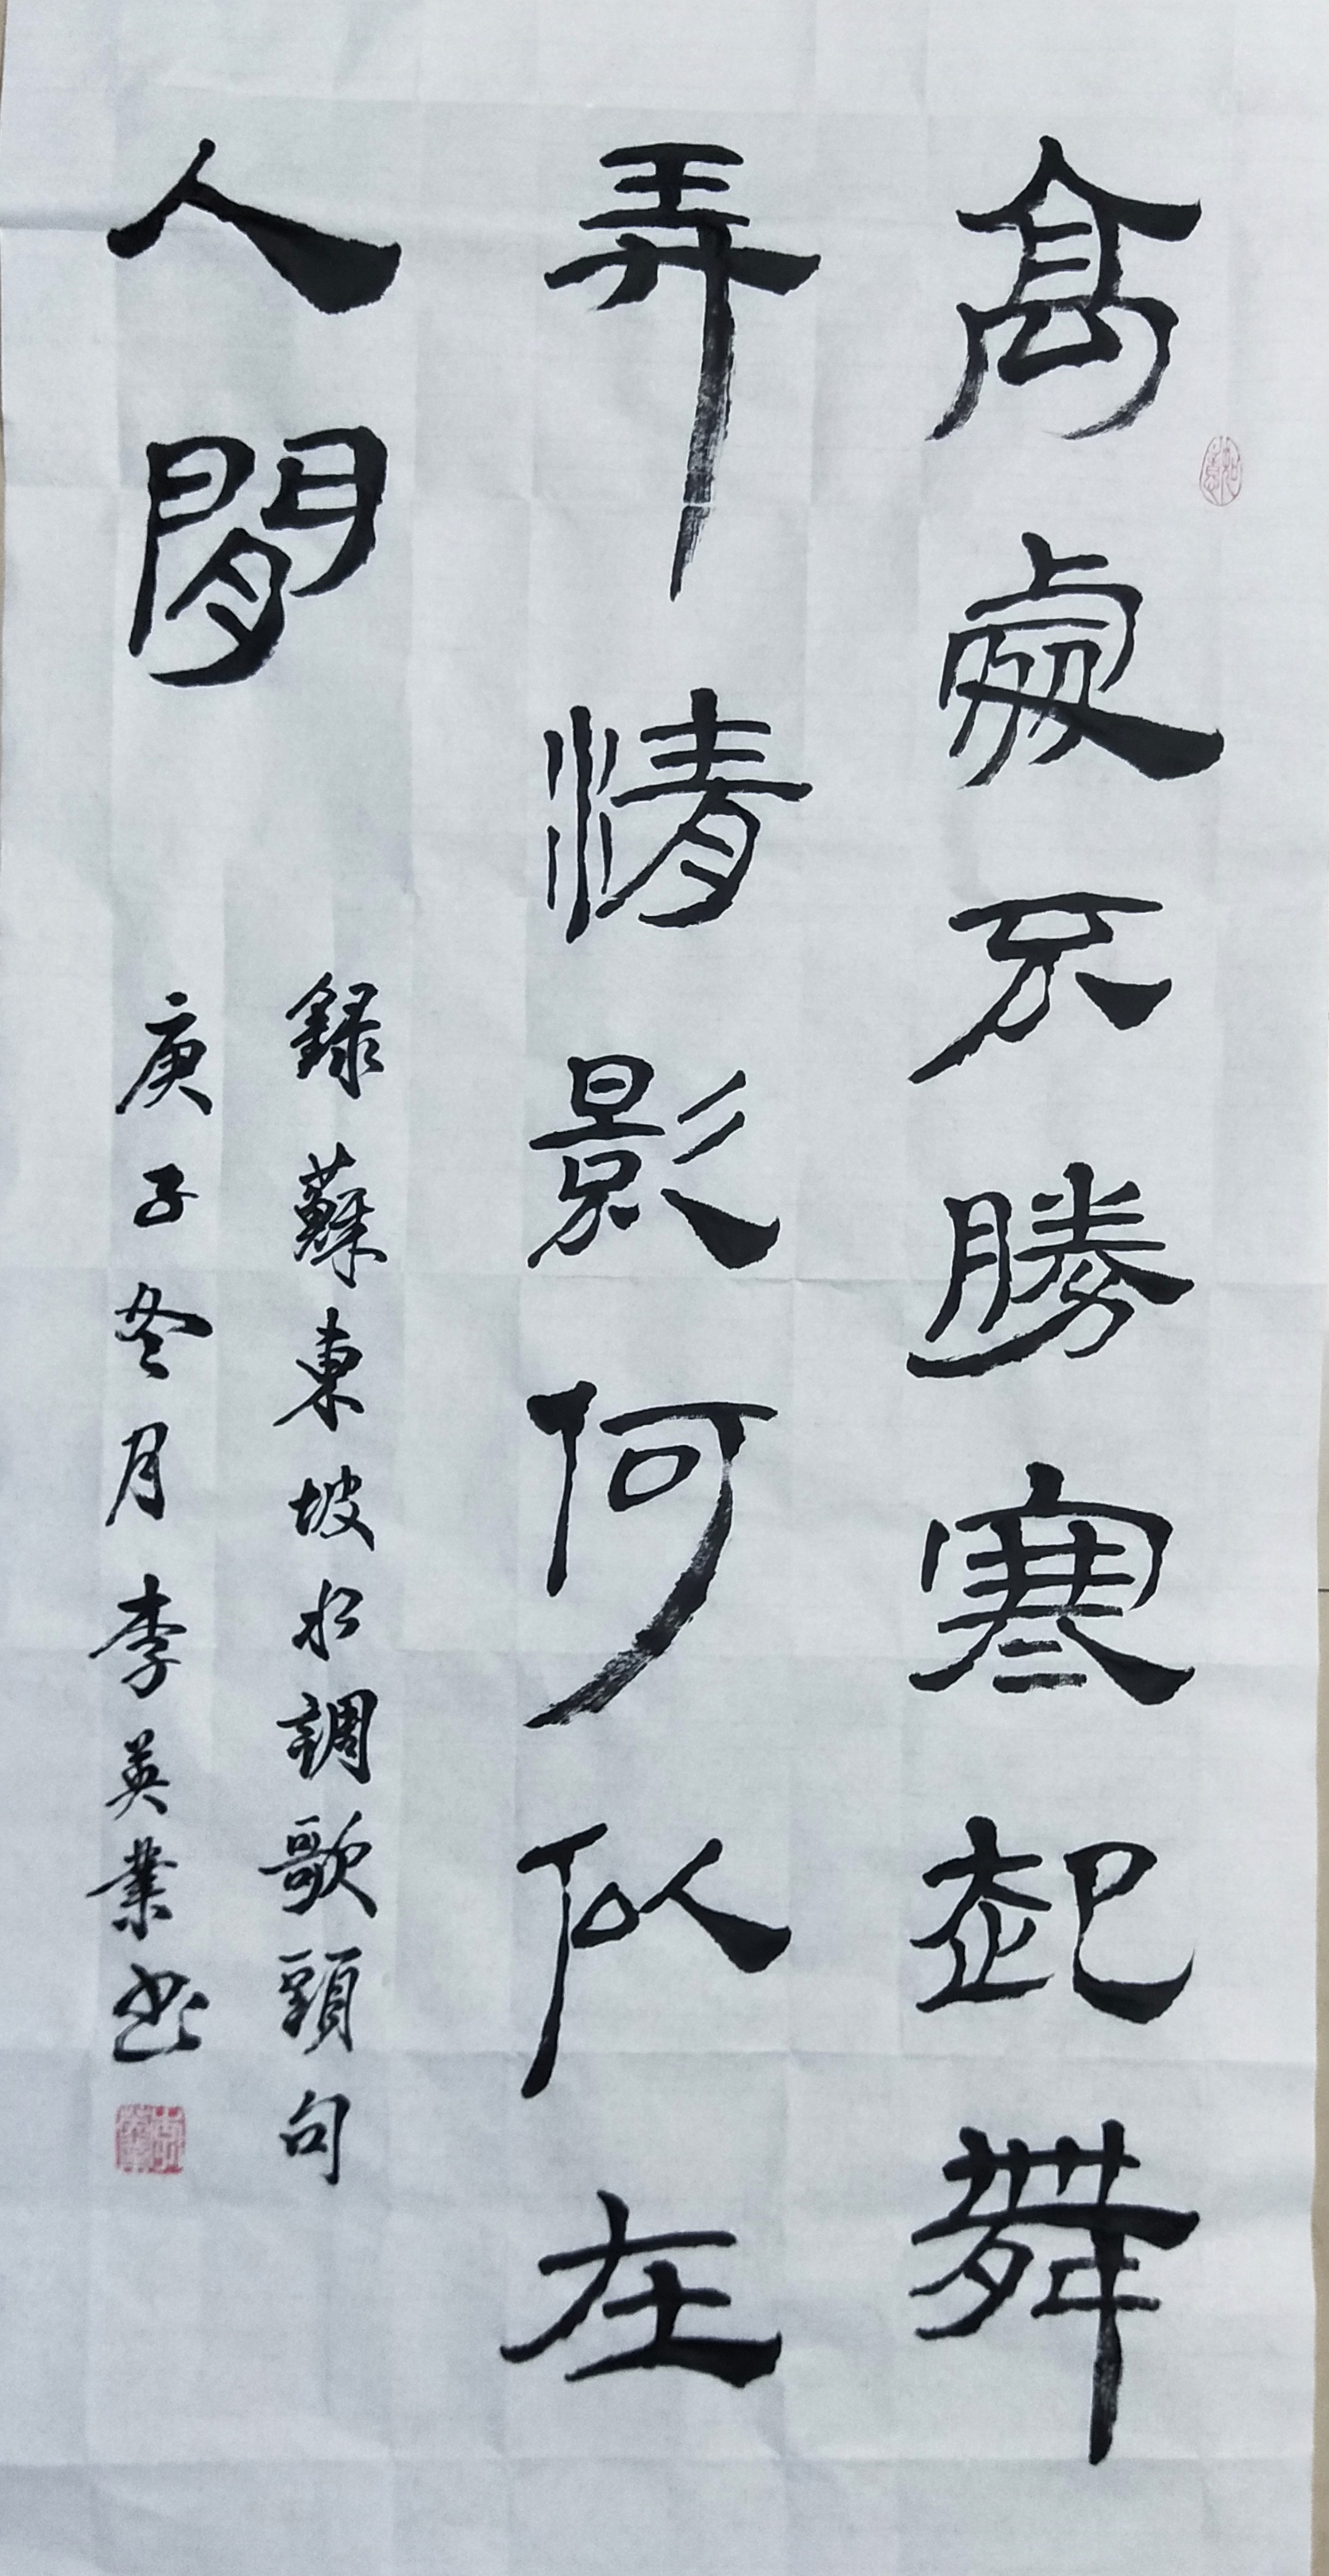 高處不勝寒起舞
弄清影何似在
人間
録蘇東坡水調歌頭句
庚子冬月李英業书